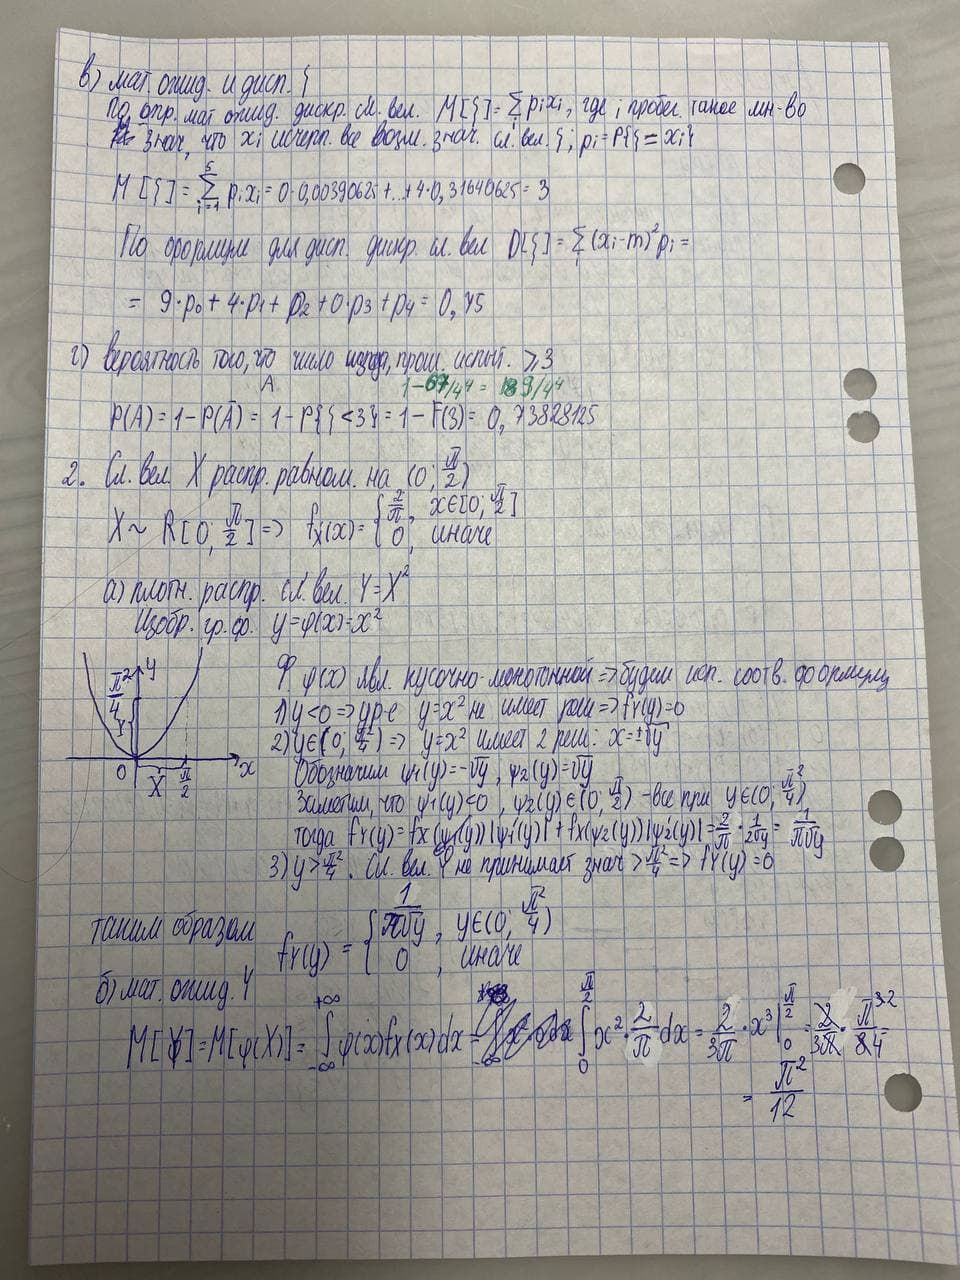 в) мат. ожид. и дисп. ξ
По опр. мат. ожид. дискр. сл. вел. M[ξ]=∑ᵢ pᵢxᵢ, где i пробег. такое мн-во
знач, что xᵢ исчерп. все возм. знач. сл. вел. ξ; pᵢ=P{ξ=xᵢ}
M[ξ]=∑ᵢ₌₁⁵ pᵢxᵢ=0·0,00390625+...+4·0,31640625=3
По формуле для дисп. дискр. сл. вел D[ξ]=∑ᵢ(xᵢ-m)²pᵢ=
= 9·p₀+4·p₁+p₂+0·p₃+p₄=0,75
г) вероятность того, что число издел, прош. испыт. ≥3
A 1-67/4⁴ = 189/4⁴
P(A)=1-P(Ā)=1-P{ξ<3}=1-F(3)=0,73828125
2. Сл. вел. X распр. равном. на (0; π/2)
X~R[0; π/2]=> fx(x)={ 2/π, x∈[0; π/2]
0, иначе
а) плотн. распр. сл. вел. Y=X²
Изобр. гр. ф. y=φ(x)=x²
y
π²/4
Y
0 X π/2 x
Ф. φ(x) явл. кусочно-монотонной=>будем исп. соотв. формулу
1) y<0=>ур-е y=x² не имеет реш=>fY(y)=0
2) y∈(0; π²/4)=> y=x² имеет 2 реш: x=±√y
Обозначим ψ₁(y)=-√y, ψ₂(y)=√y
Заметим, что ψ₁(y)<0, ψ₂(y)∈(0; π/2) -все при y∈(0; π²/4)
тогда fY(y)=fx(ψ₁(y))|ψ₁'(y)|+fx(ψ₂(y))|ψ₂'(y)|=2/π·1/2√y=1/π√y
3) y>π²/4. Сл. вел. Y не принимает знач>π²/4=>fY(y)=0
таким образом
fY(y)={ 1/π√y, y∈(0; π²/4)
0, иначе
б) мат. ожид. Y
M[Y]=M[φ(X)]=∫₋∞⁺∞ φ(x)fx(x)dx= ∫₀^(π/2) x²·2/π dx=2/3π·x³|₀^(π/2)=2/3π·π³²/84=
= π²/12